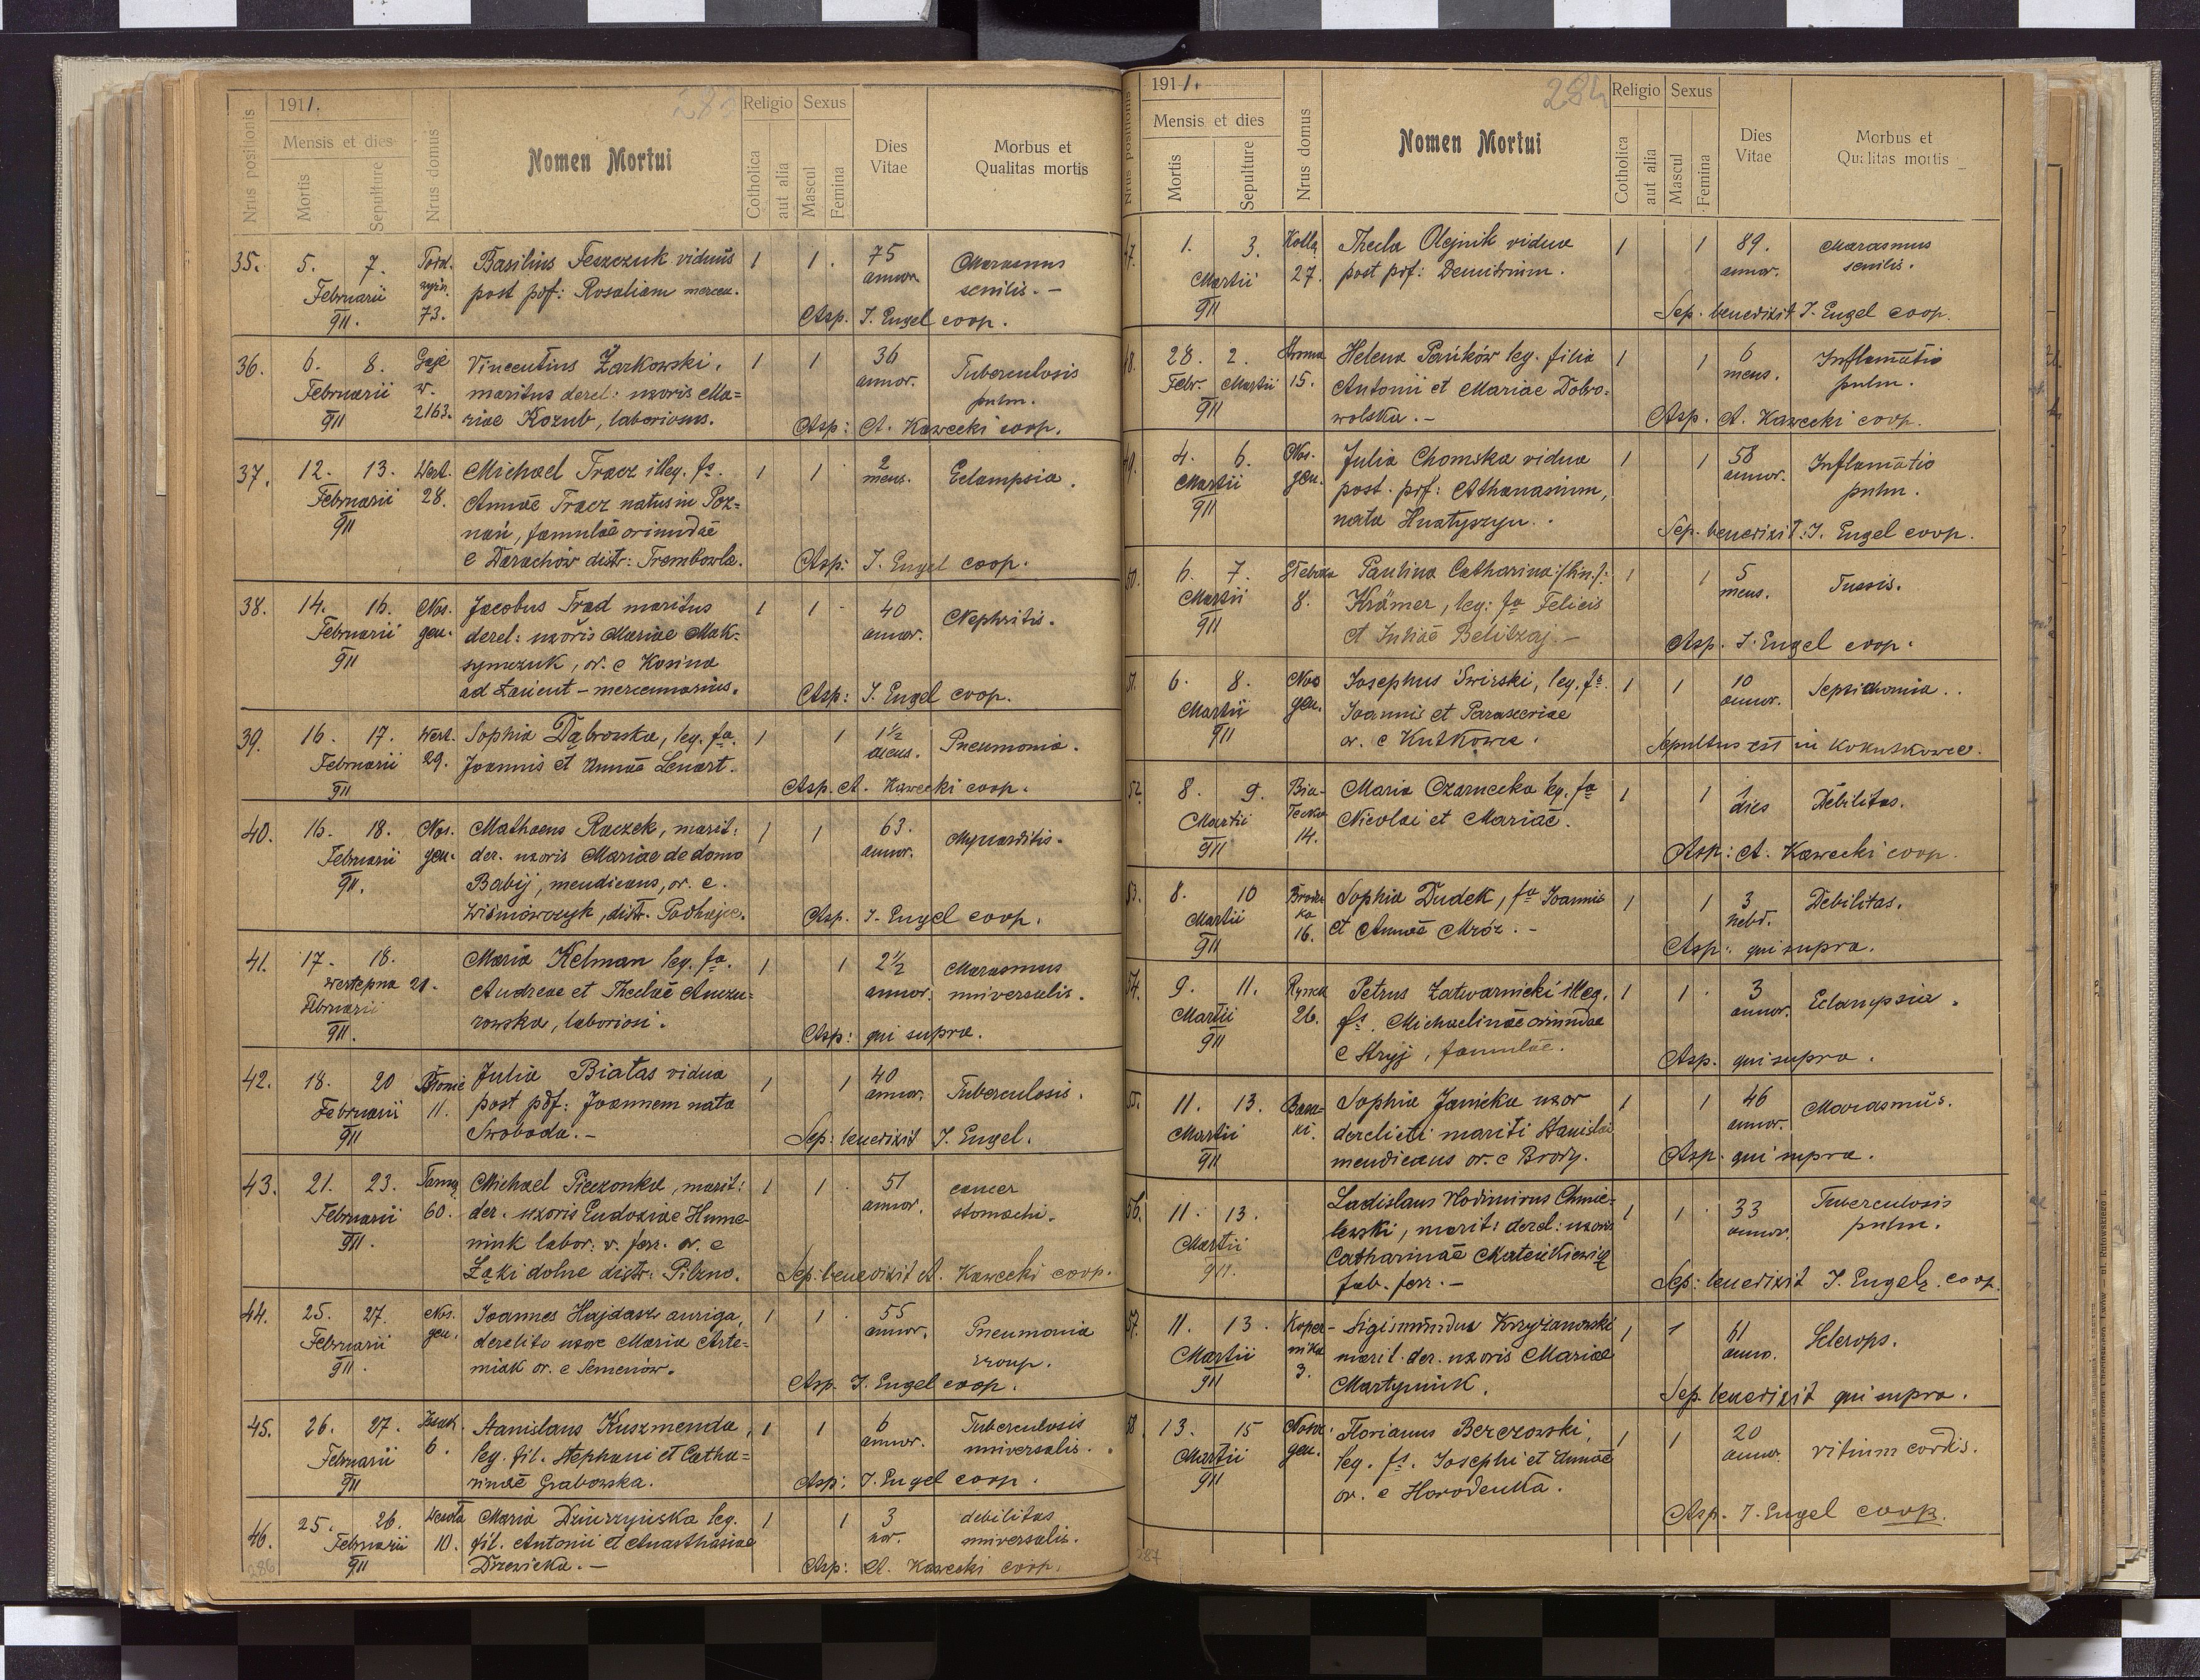 1911.
Nrus positionis
Mensis et dies
Mortis
Sepulture
Nrus domus
Nomen Mortui
Religio
Cotholica
aut alia
Sexus
Mascul
Femina
Dies Vitae
Morbus et
Qualitas mortis
35. 5. 7. Basilius Feszczuk viduus 1 1. 75 Marasmus
Februarii post pdf: Rosaliam mercen. annor. senilis. -
911. 73. Asp. J. Engel coop.
36. 6. 8. Gaje Vincentius Żarkowski, 1 1 36 Tuberculosis
Februarii w. maritus derel: uxoris Ma= annor. pulm.
911 2163. riae Kozub, laboriosus. Asp: A. Kawecki coop.
37. 12. 13. Wert. Michael Tracz illeg. fs. 1 1 2 Eclampsia.
Februarii 28. Annae Tracz natus in Poz= mens.
911 nań, famulae oriundae
e Darachów distr: Trembowla. Asp: J. Engel coop.
38. 14. 16. Nos. Jacobus Trad maritus 1 1 40 Nephritis.
Februarii gen. derel: uxoris Mariae Mak= annor.
911 symczuk, or. e Kosina
ad Łańcut - mercennarius. Asp: J. Engel coop.
39. 16. 17. Wert. Sophia Dąbrowska, leg. fa. 1 1 1½ Pneumonia.
Februarii 29. Joannis et Annae Lenart. mens.
911 Asp. A. Kawecki coop.
40. 16. 18. Nos. Mathaeus Raczek, marit: 1 1 63. Myocarditis.
Februarii gen. der. uxoris Mariae de domo annor.
911. Babij, mendicans, or. e.
Wiśniowczyk, distr. Podhajce. Asp. J. Engel coop.
41. 17. 18. Maria Kelman leg. fa. 1 1 2½ Marasmus
Wertepna 21. Andreae et Theclae annor. universalis.
Februarii rowska, laboriosi.
911. Asp: qui supra.
42. 18. 20 Błonie Julia Białas vidua 1 1 40 Tuberculosis.
Februarii 11. post pdf: Joannem nata annor.
911 Swoboda. - Sep: benedixit J. Engel.
43. 21. 23. Michael Pieczonka, marit: 1 1 51 cancer
Februarii 60. der. uxoris Eudoxiae Hume- annor. stomachi.
911. niuk labor: v. ferr. or. e
Łąki dolne distr: Pilzno. Sep. benedixit A. Kawecki coop.
44. 25. 27. Nos. Joannes Hajdasz auriga, 1 1 55 Pneumonia
Februarii gen. derelito uxore Maria Arte= annor. croup.
911. miak or. e Semenów. Asp. J. Engel coop.
45. 26. 27. Stanislaus Kuszmenda, 1 1 6 Tuberculosis
Februarii 6. leg. fil. Stephani et Catha= annor. universalis.
911 rinae Grabowska. Asp: J. Engel coop.
46. 25. 26. Wesoła Maria Dziurzyńska leg. 1 1 3 debilitas
Februarii 10. fil. Antonii et Anasthasiae hor. universalis.
911 Drzewicka. - Asp: A. Kawecki coop.
286
1911.
284
Nrus positionis
Mensis et dies
Mortis
Sepulture
Nrus domus
Nomen Mortui
Religio
Cotholica
aut alia
Sexus
Mascul
Femina
Dies Vitae
Morbus et
Qualitas mortis
47. 1. 3. Thecla Olejnik vidua 1 1 89. Marasmus
Martii 27. post pdf: Demitrium. annor. senilis.
911 Sep. benedixit J. Engel coop.
48. 28. 2. Stroma Helena Pańków leg. filia 1 1 6 Inflamatio
Febr. Martii 15. Antonii et Mariae Dobro= mens. pulm.
911 wolska. - Asp. A. Kawecki coop.
49. 4. 6. Nos. Julia Chomska vidua 1 1 58 Inflamatio
Martii gen. post. pdf: Athanasium, annor. pulm.
911 nata Hnatyszyn. Sep. benedixit: J. Engel coop.
50. 6. 7. Głeboka Paulina Catharina /bin./: 1 1 5 Tussis.
Martii 8. Krämer, leg: fa Felicis mens.
911 et Juliae Belitzaj - Asp. J. Engel coop.
51. 6. 8. Nos Josephus Świrski, leg. fs. 1 1 10
Martii gen. Joannis et Parasceviae annor.
911 or. e Kutkowce. Sepultus est in Kokutkowce.
52. 8. 9. Bia- Maria Czarnecka leg. fa 1 1 1 Debilitas.
Martii łecka Nicolai et Mariae. dies
911 14. Asp: A. Kawecki coop.
53. 8. 10 Sophia Dudek, fa Joannis 1 1 3 Debilitas.
Martii 16. et Annae Mróz. - hebd.
911 Asp: qui supra.
54. 9. 11. Rynek Petrus Zatwarnicki illeg. 1 1 3 Eclampsia.
Martii 26. fs. Michaelinae oriundae annor.
911 e Stryj, famulae. Asp. qui supra.
55. 11. 13. Bara= Sophia Janicka uxor 1 1 46 Marasmus.
Martii ki. derelicti mariti Stanislai annor.
911 mendicans or. e Brody. Asp. qui supra.
56. 11. 13. Ladislaus Wlodimirus Chmie- 1 1 33 Tuberculosis
Martii lewski, marit: derel: uxoris annor. pulm.
911. Catharinae Mateńkiewicz
fab. ferr. - Sep: benedixit J. Engel coop.
57. 11. 13. Koper- Sigismundus Krzyżanowski 1 1 61 Sclerops.
Martii nika marit. der. uxoris Mariae anno.
911 3. Martyniuk. Sep. benedixit qui supra.
58. 13. 15 Nosoc. Florianus Berezowski, 1 1 20 vitium cordis.
Martii gen. leg. fs. Josephi et Annae annor.
911 or. e Horodenka.
Asp. J. Engel coop.
287